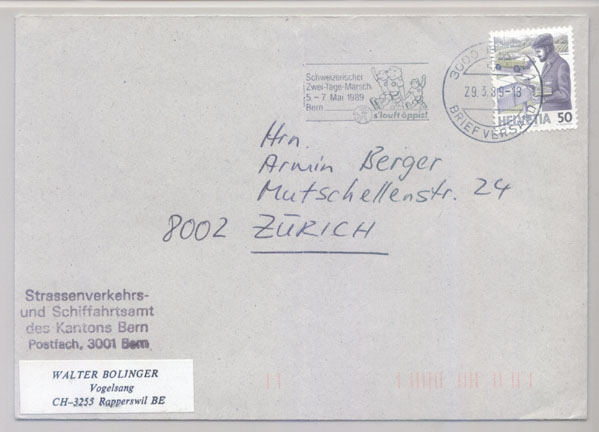 Schweizerischer
Zwei-Tage-Marsch
5.-7. Mai 1989
Bern
s'louft öppis!
3000
29.3.89-13
BRIEFVERSAND
HELVETIA 50
Hrn.
Armin Berger
Mutschellenstr. 24
8002 ZÜRICH
Strassenverkehrs-
und Schiffahrtsamt
des Kantons Bern
Postfach, 3001 Bern
WALTER BOLINGER
Vogelsang
CH-3255 Rapperswil BE